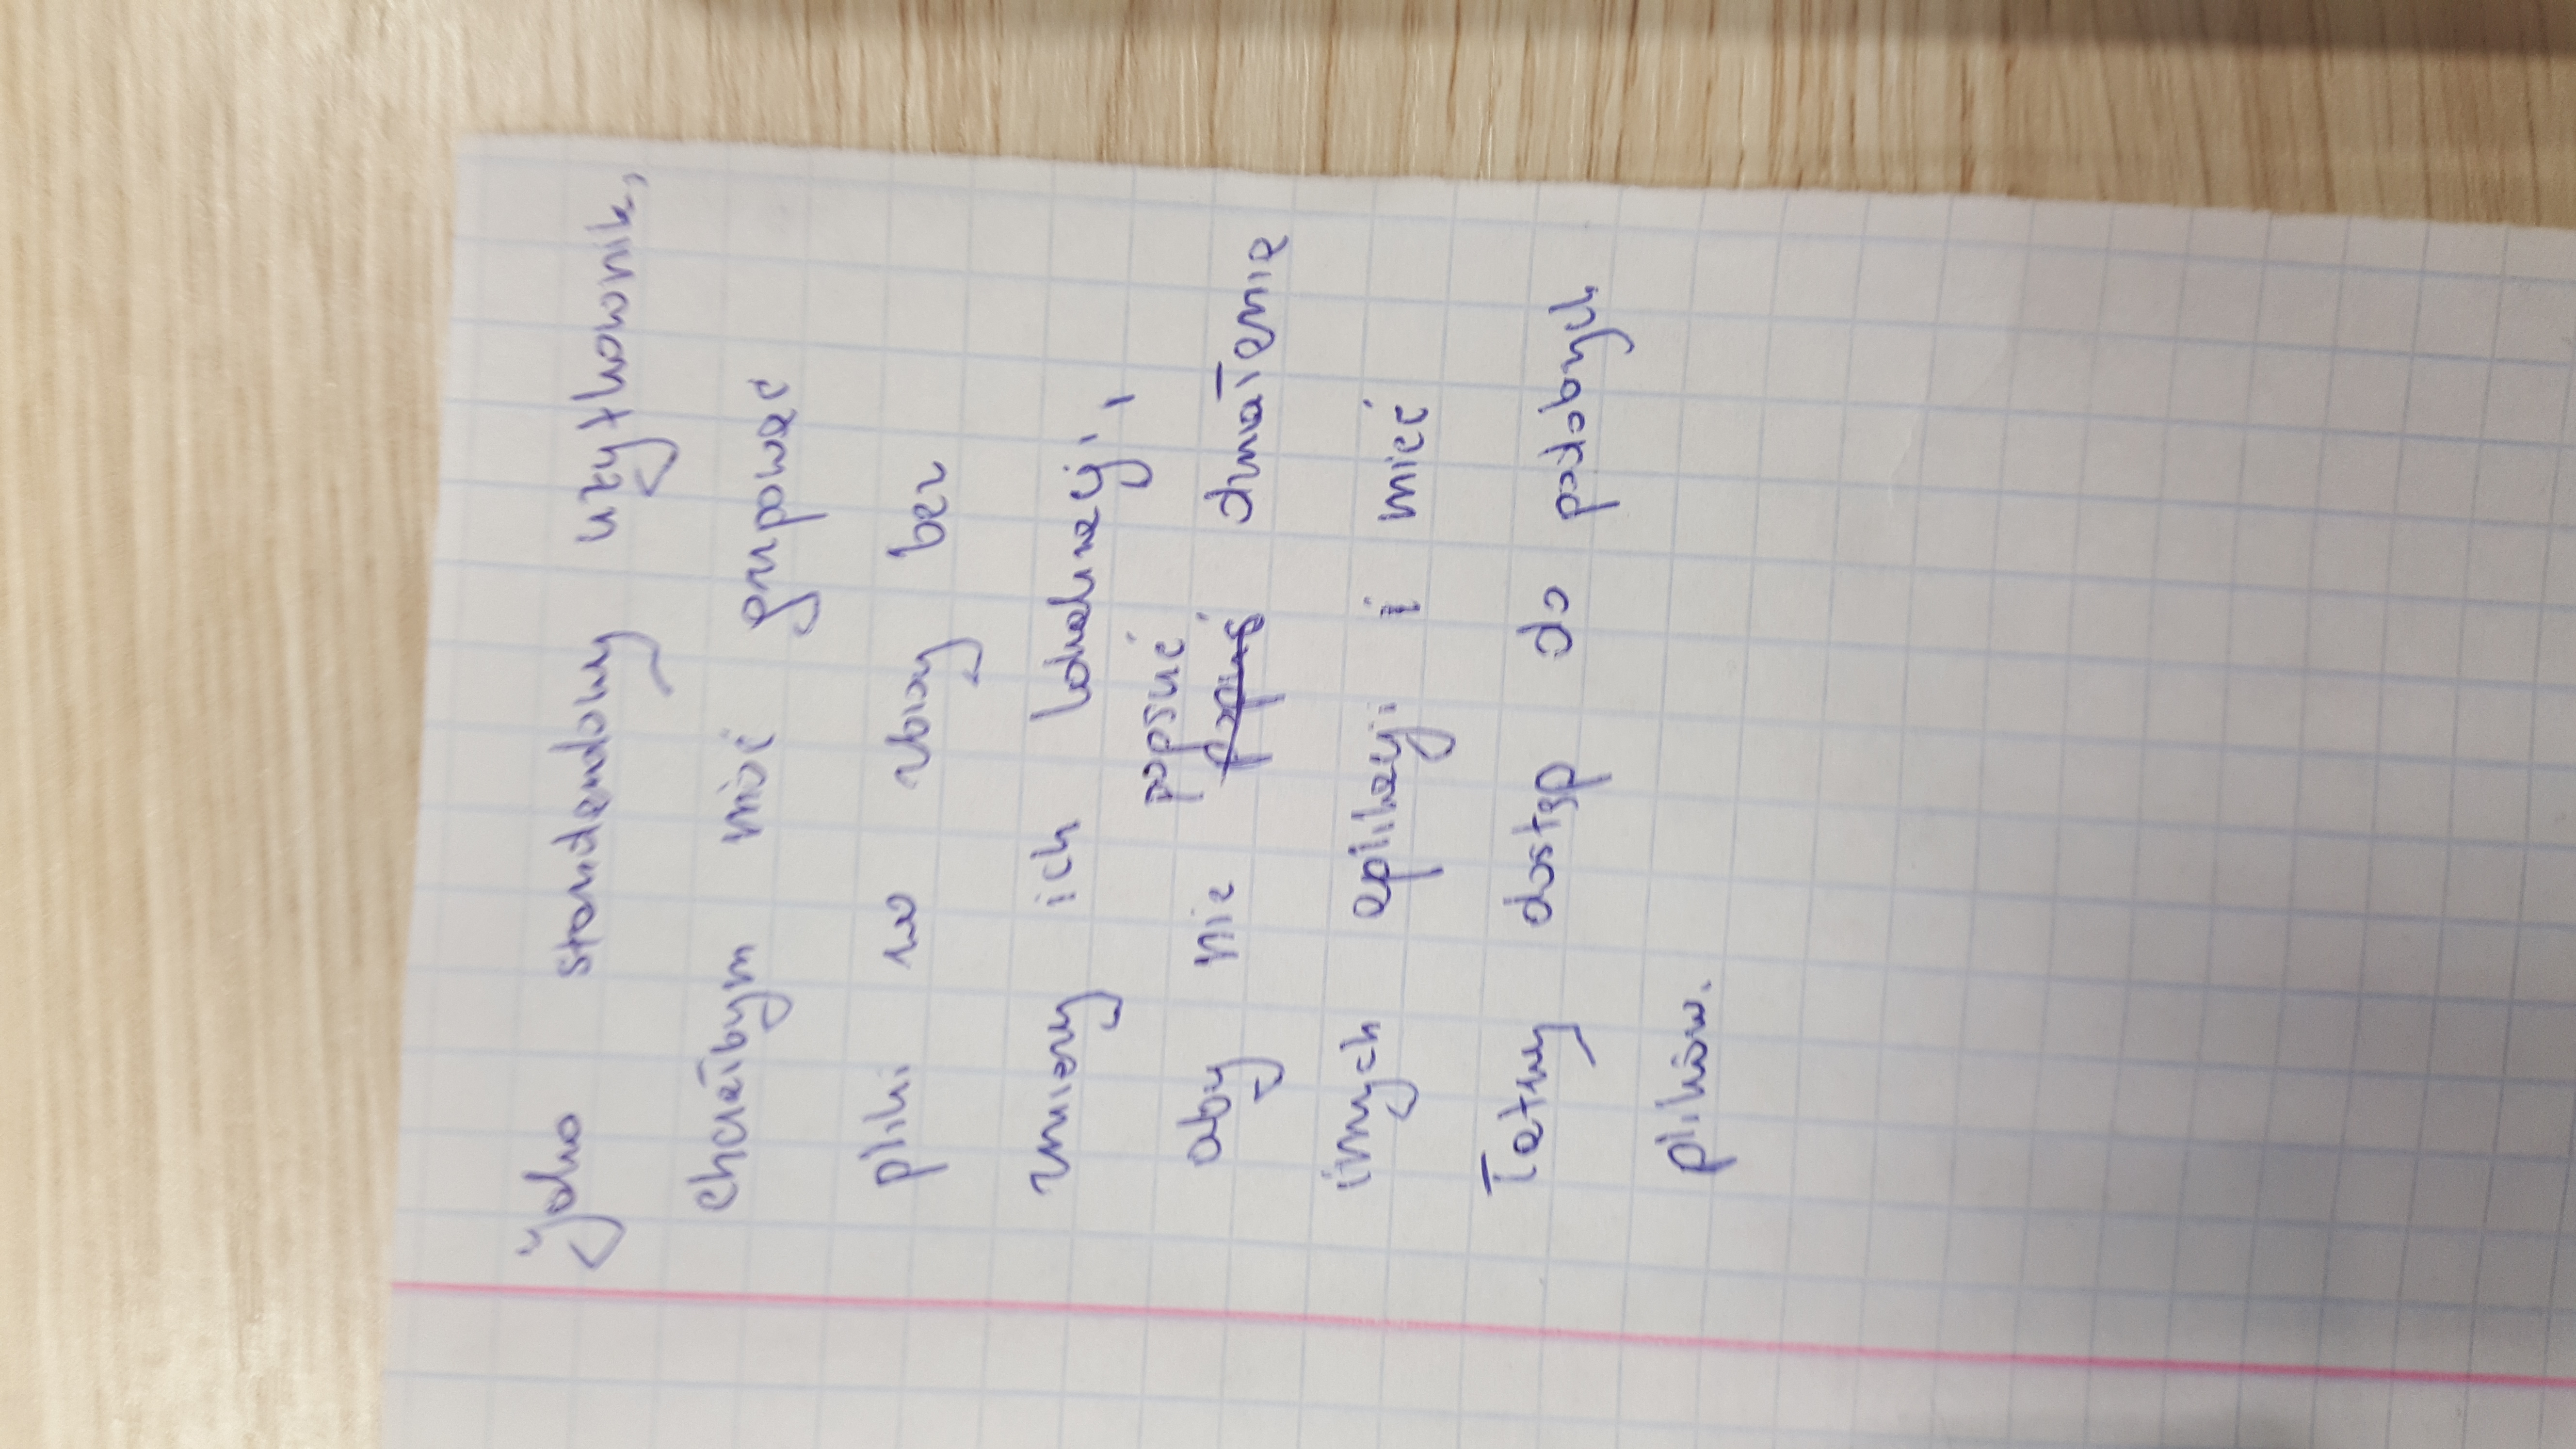 Jako standardowy użytkownik,
chciałbym móc grupować
pliki w zbiory bez
zmiany ich lokalizacji,
popsuć
aby nie popuś działanie
innych aplikacji i mieć
łatwy dostęp do podobnych
plików.